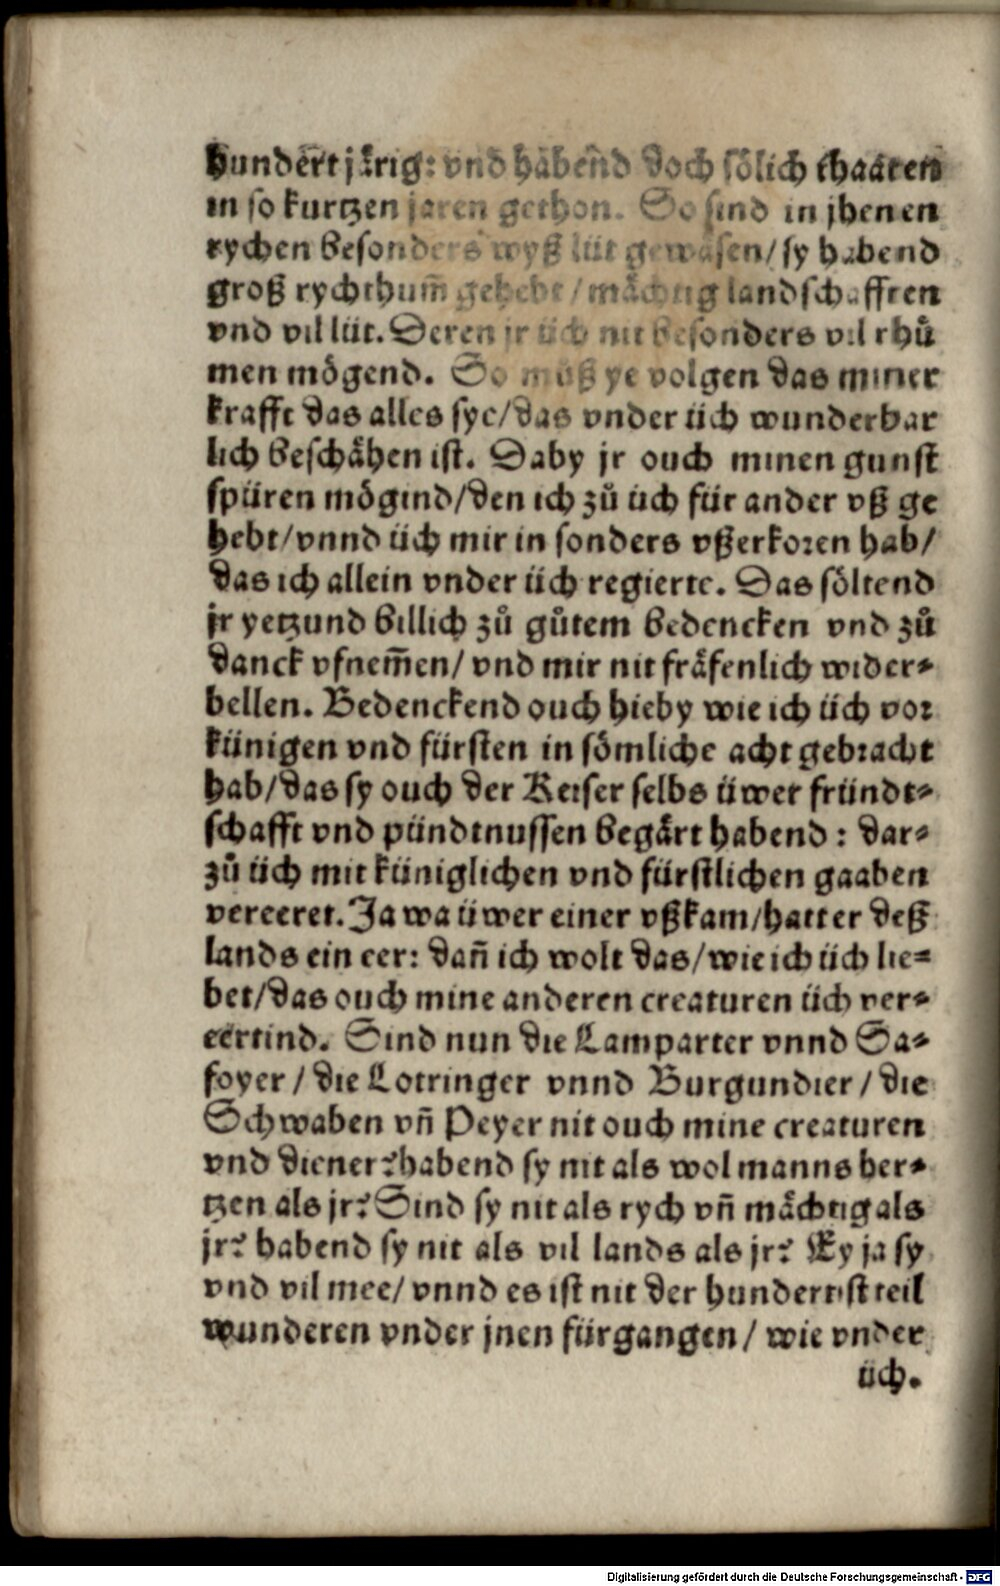 hundert järig: vnd habend doch sölich thaaten
in so kurtzen jaren gethon. So sind in jhenen
rychen besonders wyß lüt gewäsen/ sy habend
groß rychthum̄ gehebt / mächtig landschafften
vnd vil lüt. Deren jr üch nit besonders vil rhů
men mögend. So můß ye volgen das miner
krafft das alles sye/ das vnder üch wunderbar
lich beschähen ist. Daby jr ouch minen gunst
spüren mögind/ den ich zů üch für ander vß ge
hebt/ vnnd üch mir in sonders vßerkoren hab/
das ich allein vnder üch regierte. Das söltend
jr yetzund billich zů gůtem bedencken vnd zů
danck vfnem̄en/ vnd mir nit fräfenlich wider⸗
bellen. Bedenckend ouch hieby wie ich üch vor
künigen vnd fürsten in sömliche acht gebracht
hab/ das sy ouch der Keiser selbs üwer fründt⸗
schafft vnd pündtnussen begärt habend: dar⸗
zů üch mit küniglichen vnd fürstlichen gaaben
vereeret. Ja wa üwer einer vßkam/ hatt er deß
lands ein eer: dañ ich wolt das/ wie ich üch lie⸗
bet/ das ouch mine anderen creaturen üch ver⸗
eertind. Sind nun die Lamparter vnnd Sa⸗
foyer / die Lotringer vnnd Burgundier / die
Schwaben vñ Peyer nit ouch mine creaturen
vnd diener? habend sy nit als wol manns her⸗
tzen als jr? Sind sy nit als rych vñ mächtig als
jr? habend sy nit als vil lands als jr? Ey ja sy
vnd vil mee/ vnnd es ist nit der hundertist teil
wunderen vnder jnen fürgangen/ wie vnder
üch.
Digitalisierung gefördert durch die Deutsche Forschungsgemeinschaft - DFG